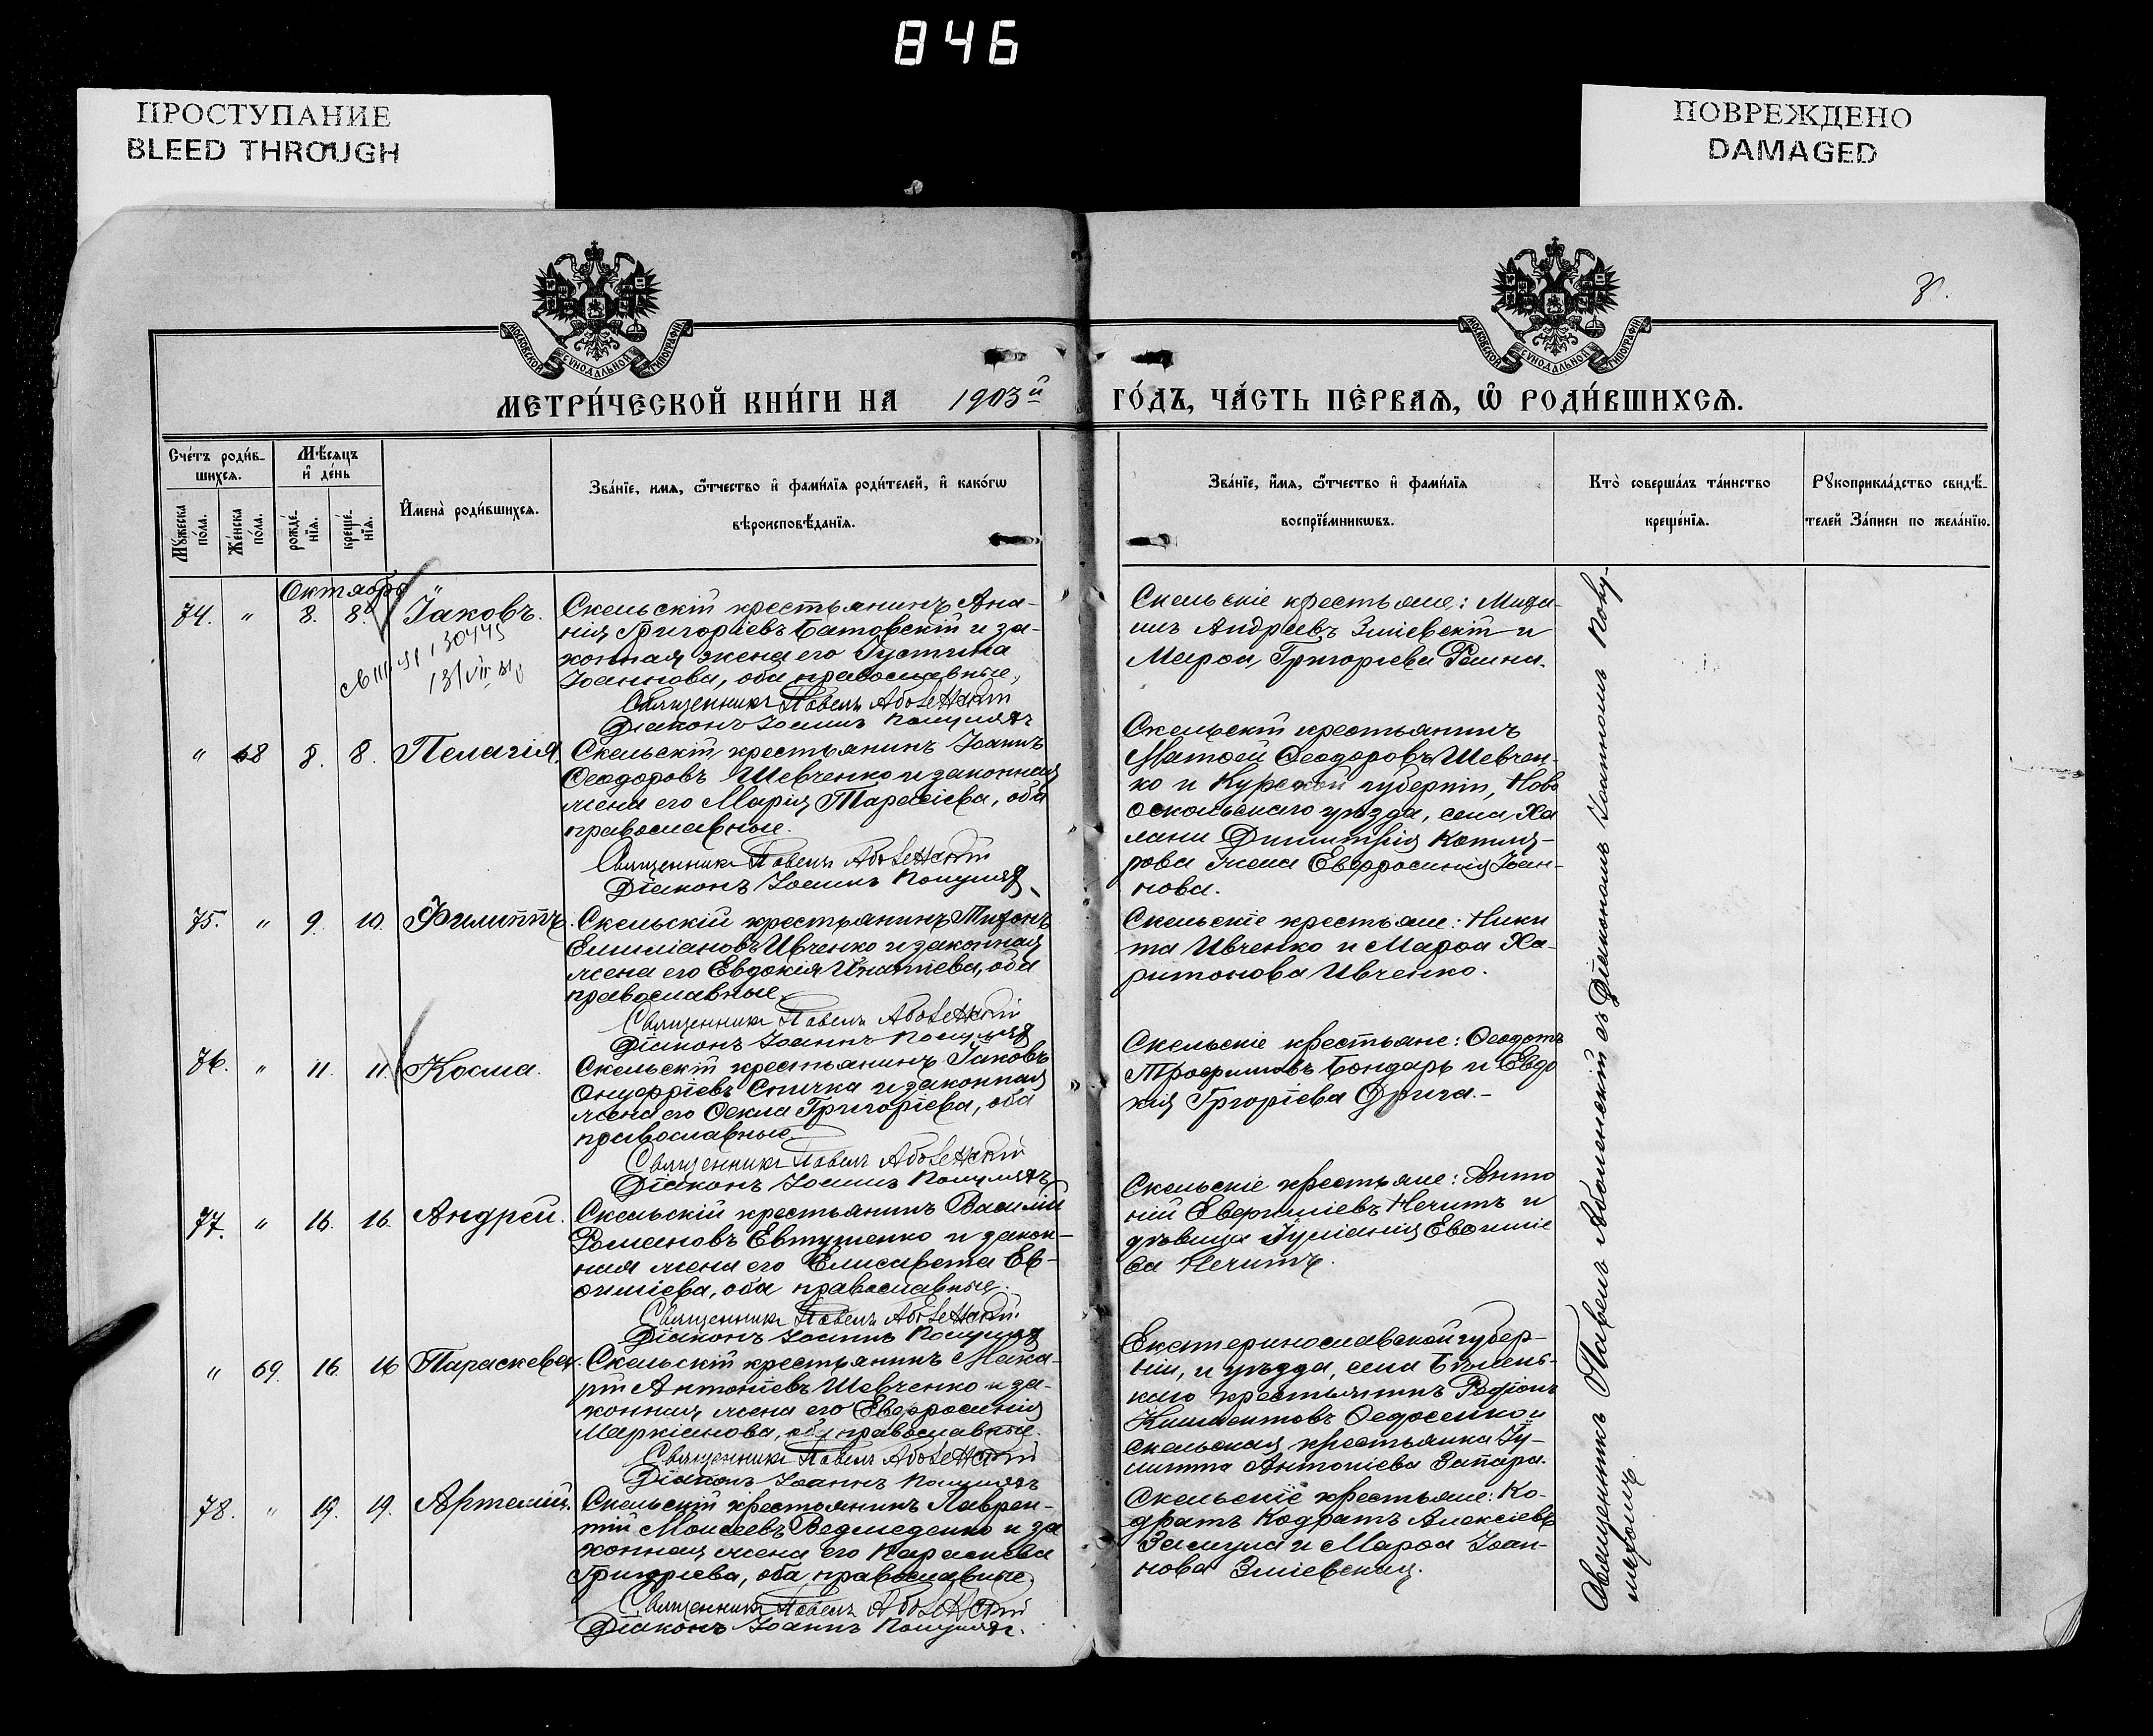 846
ПРОСТУПАНИЕ
BLEED THROUGH
ПОВРЕЖДЕНО
DAMAGED
МОСКОВСКОЙ СУНОДАЛЬНОЙ ТИПОГРАФІИ
МОСКОВСКОЙ СУНОДАЛЬНОЙ ТИПОГРАФІИ
МЕТРИ́ЧЕСКОЙ КНИ́ГИ НА 1903й ГО́ДЪ, ЧА́СТЬ ПЕ́РВАѦ, Ѡ РОДИ́ВШИХСѦ.
Сче́тъ роди́в-
шихсѧ.
Мꙋ́жеска
по́ла.
Же́нска
по́ла.
Мѣ́сѧцъ
и҆ де́нь
рожде́-
нїѧ.
креще́-
нїѧ.
И҆мена̀ роди́вшихсѧ.
Зва́нїе, имѧ, ѻ҆́тчество и҆ фами́лїѧ роди́телей, и҆ како́гѡ
вѣроисповѣ́данїѧ.
Зва́нїе, и҆́мѧ, ѻ҆́тчество и҆ фами́лїѧ
воспрїе́мникѡвъ.
Кто̀ соверша́лъ та́инство
креще́нїѧ.
Рꙋкоприкла́дство свидѣ́-
телей За́писи по жела́нїю.
Октябрь
74. " 8. 8. Іаковъ.
Скельскій крестьянинъ Ана-
нія Григоріевъ Батовскій и за-
конная жена его Іустина
Іоаннова, оба православные.
Священникъ Павелъ
Діаконъ Іоаннъ
Скельскіе крестьяне: Миха-
илъ Андреевъ Зміевскій и
Марѳа Григорьева
13/VII
" 68 8. 8. Пелагія.
Скельскій крестьянинъ Іоаннъ
Ѳеодоровъ Шевченко и законная
жена его Марія Тарасіева, оба
православные.
Священникъ Павелъ
Діаконъ Іоаннъ
Скельскій крестьянинъ
Матѳей Ѳеодоровъ Шевчен-
ко и Курской губерніи, Ново
оскольскаго уѣзда, села Ха
лани Димитрія Котля-
рова жена Евфросинія Іоан-
нова.
75. " 9. 10. Филиппъ.
Скельскій крестьянинъ Тихонъ
Емиліановъ Ивченко и законная
жена его Евдокія Игнатіева, оба
православные.
Священникъ Павелъ
Діаконъ Іоаннъ
Скельскіе крестьяне: Ники
та Ивченко и Марѳа Ха-
ритонова Ивченко.
76. " 11. 11. Косма.
Скельскій крестьянинъ Іаковъ
Онуфріевъ Спичка и законная
жена его Ѳекла Григоріева, оба
православные.
Священникъ Павелъ
Діаконъ Іоаннъ
Скельскіе крестьяне: Ѳеодотъ
Трофимовъ Бондарь и Евдо
кія Григоріева
77. " 16. 16. Андрей.
Скельскій крестьянинъ Василій
Романовъ Евтушенко и закон-
ная жена его Елисавета Ев-
ѳиміева, оба православные.
Священникъ Павелъ
Діаконъ Іоаннъ
Скельскіе крестьяне: Анто
ній Евѳиміевъ Нечитъ и
дѣвица Іуліанія Евѳиміе
ва Нечитъ.
" 69. 16. 16 Параскева.
Скельскій крестьянинъ Мака-
рій Антоніевъ Шевченко и за-
конная жена его Евфросинія
Маркіанова, оба православные.
Священникъ Павелъ
Діаконъ Іоаннъ
Екатеринославской губер-
ніи, и уѣзда, села Бѣлень-
каго крестьянинъ Родіонъ
Климентовъ Ѳедосенко и
скельская крестьянка Іу-
литта Антоніева Запара.
78. " 19. 19. Артемій.
Скельскій крестьянинъ Лаврен-
тій Моисеевъ Ведмеденко и за
конная жена его Параскева
Григоріева, оба православные.
Священникъ Павелъ
Діаконъ Іоаннъ
Скельскіе крестьяне: Ко-
дратъ Кодратъ Алексіевъ
и Марѳа Іоан-
нова Зміевская.
Священникъ Павелъ съ Діакономъ Іоанномъ